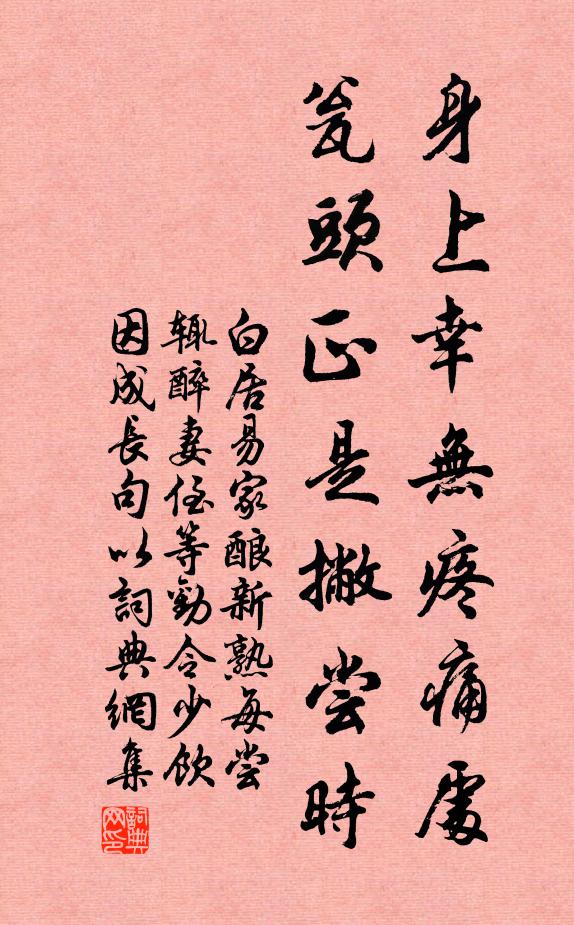 身上幸無疼痛處
瓮頭正是撇嘗時
白居易家酿新熟每尝
辄醉妻侄等勸令少飲
因成長句以詞典網集
詞典網印